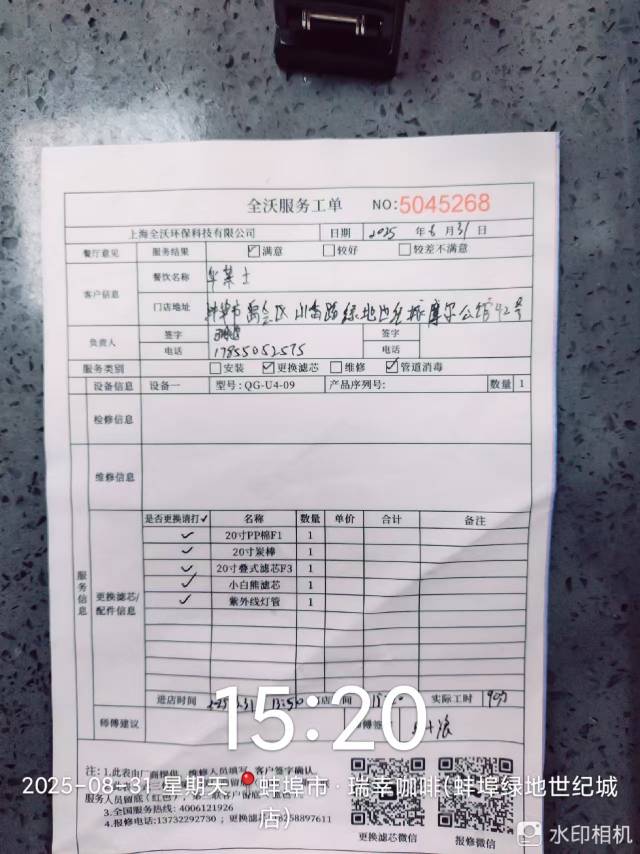 全沃服务工单 NO:5045268
上海全沃环保科技有限公司 日期 2025 年 8 月 31 日
餐厅意见 服务结果 ☑满意 □较好 □较差不满意
客户信息 餐饮名称 华莱士
门店地址 蚌埠市禹会区 绿地世纪城摩尔公馆42号
负责人 签字 签字
电话 17855052575 电话
服务类别 □安装 ☑更换滤芯 □维修 ☑管道消毒
设备信息 设备一 型号:QG-U4-09 产品序列号: 数量 1
检修信息
维修信息
服务信息 更换滤芯/配件信息
是否更换请打✓ 名称 数量 单价 合计 备注
✓ 20寸PP棉F1 1
✓ 20寸炭棒 1
✓ 20寸叠式滤芯F3 1
✓ 小白熊滤芯 1
✓ 紫外线灯管 1
进店时间 实际工时 90分
师傅建议
15:20
注:1.此表由厂商提供,维修人员填写,客户签字确认
2025-08-31 星期天 蚌埠市·瑞幸咖啡(蚌埠绿地世纪城店)
服务人员留底(红色)
3.全国服务热线:4006121926
4.报修电话:13732292730; 更换滤芯 58258897611
更换滤芯微信 报修微信
水印相机